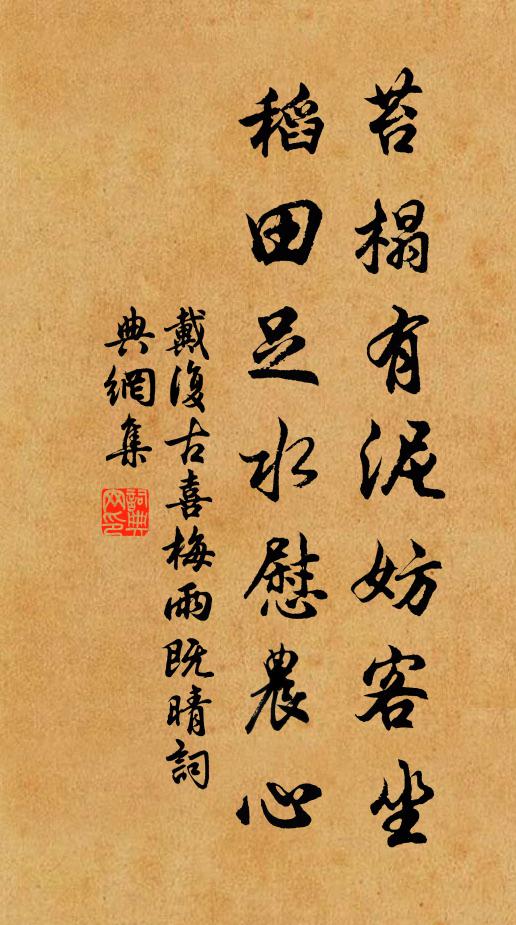 苔榻有泥妨客坐
稻田足水慰農心
戴復古喜梅雨既晴詞
典網集
詞典網印